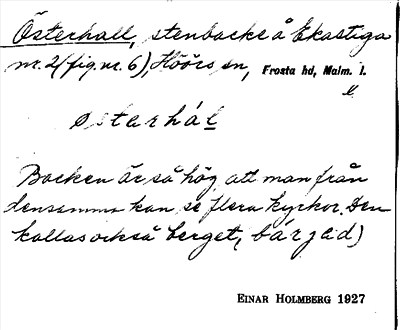 Österhall, stenbacke å Ekastiga
nr. 2 (fig. nr. 6), Höörs sn, Frosta hd, Malm. l.
østarhál
Backen är så hög att man från
densamma kan se flera kyrkor. Den
kallas också berget, bárjəd)
EINAR HOLMBERG 1927